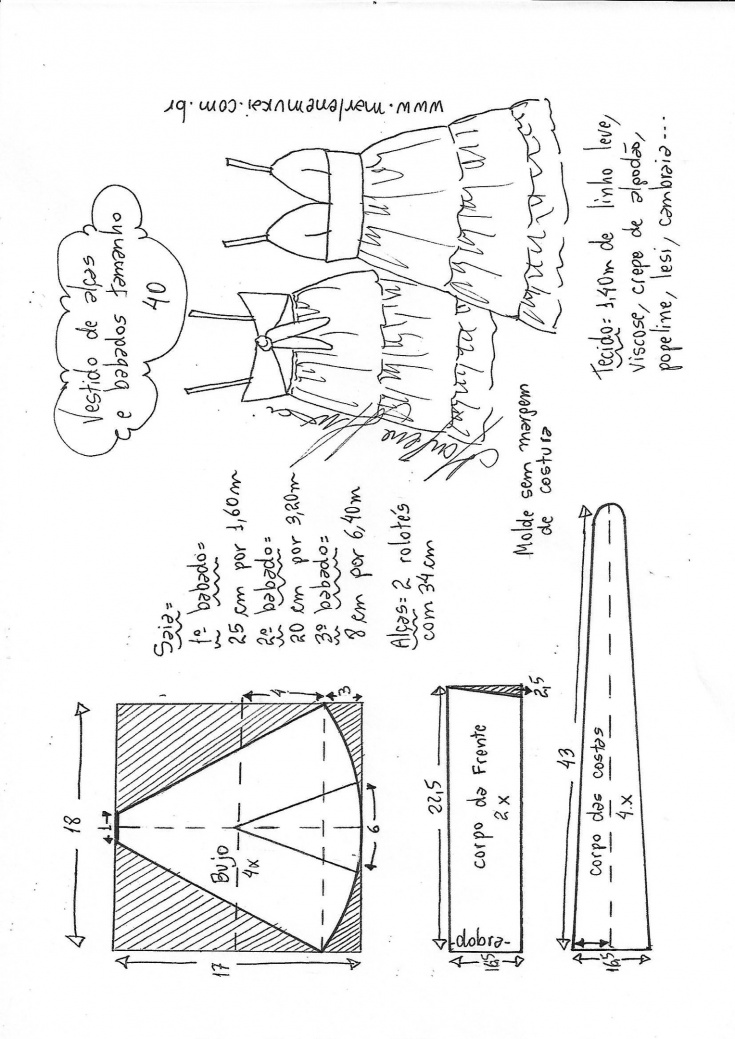 Vestido de alças
e babados tamanho
40
www.marlenemukai.com.br
Tecido= 1,40m de linho leve,
viscose, crepe de algodão,
popeline, lesi, cambraia...
Saia=
1º babado=
25 cm por 1,60m
2º babado=
20 cm por 3,20m
3º babado=
8 cm por 6,40m
Alças= 2 rolotés
com 34 cm
Molde sem margem
de costura
18
1
4
3
Bujo
4x
6
17
22,5
2,5
corpo da Frente
2x
-dobra-
43
corpo das costas
4.x